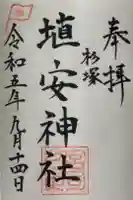 奉拝
杉塚
埴安神社
令和五年九月十四日